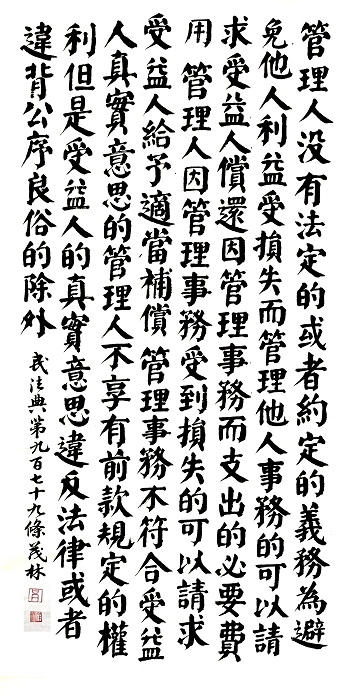 管理人没有法定的或者約定的義務為避
免他人利益受損失而管理他人事務的可以請
求受益人償還因管理事務而支出的必要費
用 管理人因管理事務受到損失的可以請求
受益人給予適當補償 管理事務不符合受益
人真實意思的管理人不享有前款規定的權
利但是受益人的真實意思違反法律或者
違背公序良俗的除外
民法典第九百七十九條茂林